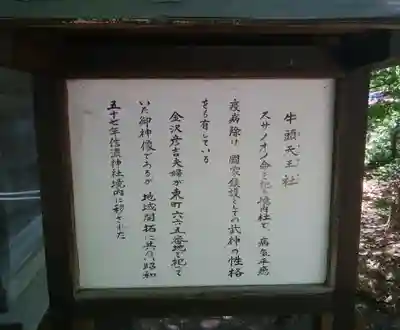 牛頭天王社
スサノオノ命を祀る境内社で、病気平癒
疫病除け、国家鎮護としての武神の性格
をも有している
金沢彦吉夫婦が東町六六五番地に祀って
いた御神像であるが、地域開拓に共ない昭和
五十七年信濃神社境内に移された